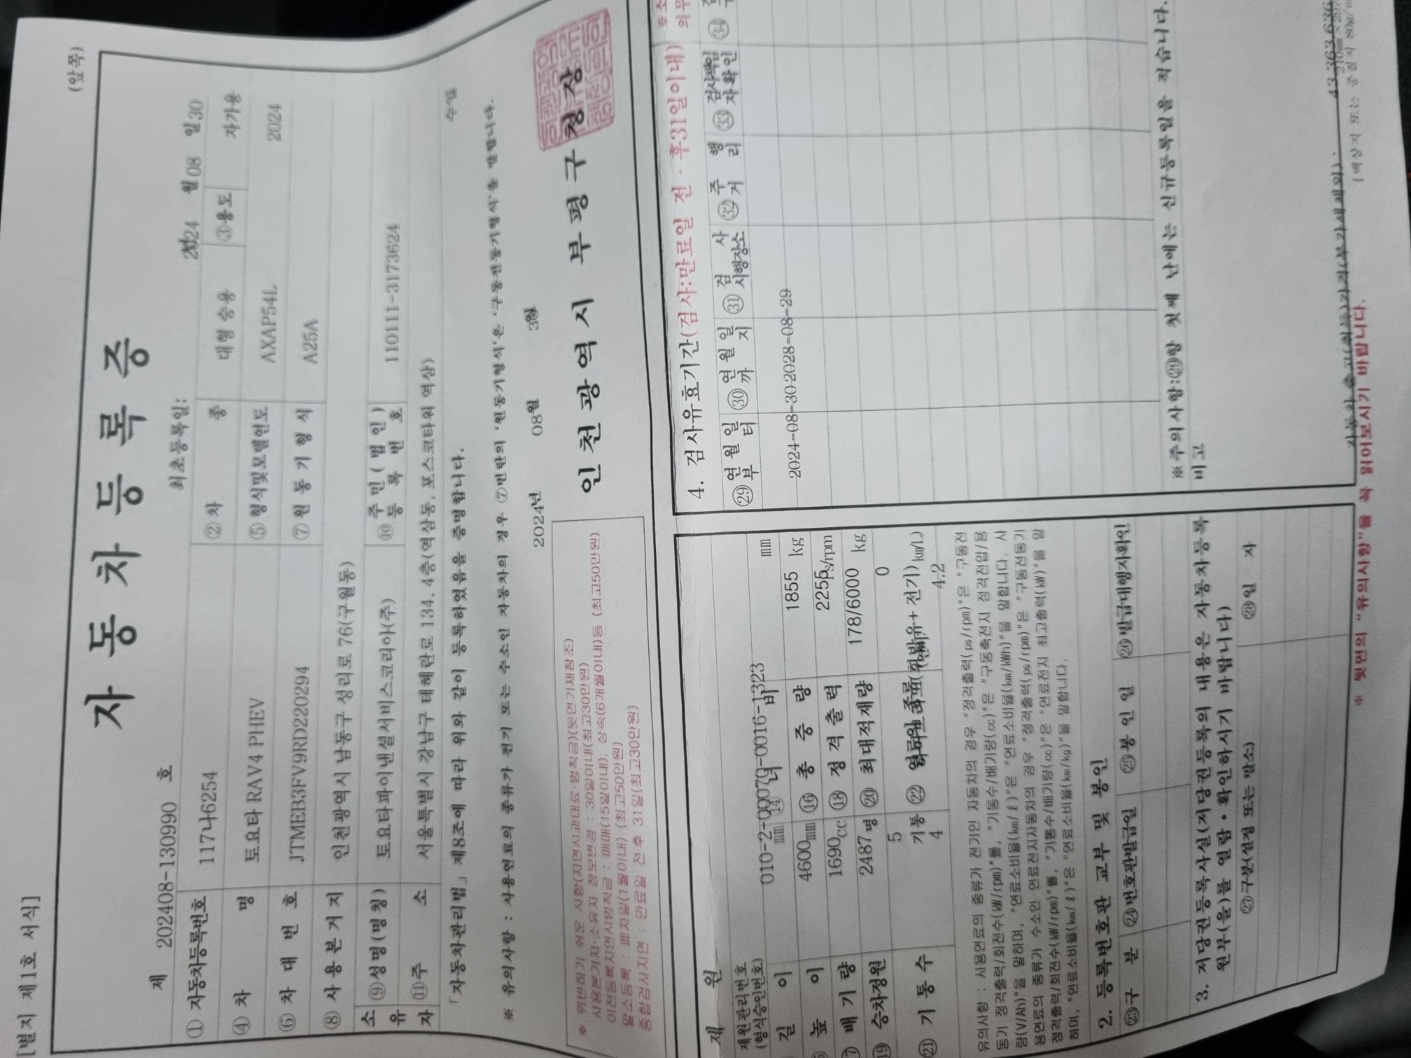 [별지 제1호 서식]
(앞쪽)
자 동 차 등 록 증
제 202408-1130990 호
최초등록일: 2024 월08 일30
① 자동차등록번호 117나6254 ② 차 종 대형 승용 ③용도 자가용
④ 차 명 토요타 RAV4 PHEV ⑤ 형식및모델연도 AXAP54L 2024
⑥ 차 대 번 호 JTMEB3FV9RD220294 ⑦ 원 동 기 형 식 A25A
⑧ 사 용 본 거 지 인천광역시 남동구 성리로 76(구월동)
소유자 ⑨성명(명칭) 토요타파이낸셜서비스코리아(주) ⑩ 주 민 ( 법 인 ) 등 록 번 호 110111-3173624
⑪주 소 서울특별시 강남구 테헤란로 134, 4층(역삼동, 포스코타워 역삼)
「자동차관리법」 제8조에 따라 위와 같이 등록하였음을 증명합니다.
수입
※ 유의사항 : 사용연료의 종류가 전기 또는 수소인 자동차의 경우 ⑦번란의 '원동기형식'은 '구동전동기형식'을 말합니다.
2024년 08월
인 천 광 역 시 부 평 구 청 장
※ 위반하기 쉬운 사항(지연시과태료·범칙금)(뒷면기재참조)
사용본거지·소유자 정보변경 : 30일이내(최고30만원)
이전등록지연시범칙금 : 매매(15일이내), 상속(6개월이내)등 (최고50만원)
말소등록 : 폐차일(1월이내) (최고50만원)
종합검사지연 : 만료일 전후 31일(최고30만원)
제 원
제원관리번호
(형식승인번호) 010-2-00079-0016-1323
길 이 4600mm ⑭ 너 비 mm
높 이 1690 ⑯ 총 중 량 1855 kg
배 기 량 2487 cc ⑱ 정 격 출 력 178/6000 ps/rpm
⑲ 승차정원 5 명 ⑳ 최대적재량 0 kg
㉑ 기 통 수 4 기통 ㉒ 4.2
유의사항 : 사용연료의 종류가 전기인 자동차의 경우 "정격출력(ps/rpm)"은 "구동전
동기 정격출력/회전수(kW/rpm)"를, "기통수/배기량(cc)"은 "구동축전지 정격전압/용
량(V/Ah)"을 말하며, "연료소비율(km/ℓ)"은 "연료소비율(km/kWh)"을 말합니다. 사
용연료의 종류가 수소인 연료전지자동차의 경우 "정격출력(ps/rpm)"은 "구동전동기
정격출력/회전수(kW/rpm)"를, "기통수/배기량(cc)"은 "연료전지 최고출력(kW)"을 말
하며, "연료소비율(km/ℓ)"은 "연료소비율(km/kg)"을 말합니다.
2. 등록번호판 교부 및 봉인
㉓구 분 ㉔번호판발급일 ㉕봉 인 일 ㉖발급대행자확인
3. 저당권등록사실(저당권등록의 내용은 자동차등록
원부(을)를 열람·확인하시기 바랍니다)
㉗구분(설정 또는 말소) ㉘일 자
4. 검사유효기간(검사:만료일 전 · 후31일이내)
㉙연 월 일 부 터 ㉚연 월 일 까 지 ㉛검 사 시행장소 ㉜주 행 거 리 ㉝검사책임자확인 ㉞
2024-08-30 2028-08-29
※주의사항:㉙항 첫째 난에는 신규등록일을 적습니다.
비고
43,363,636
※ 뒷면의 "유의사항"을 꼭 읽어보시기 바랍니다.